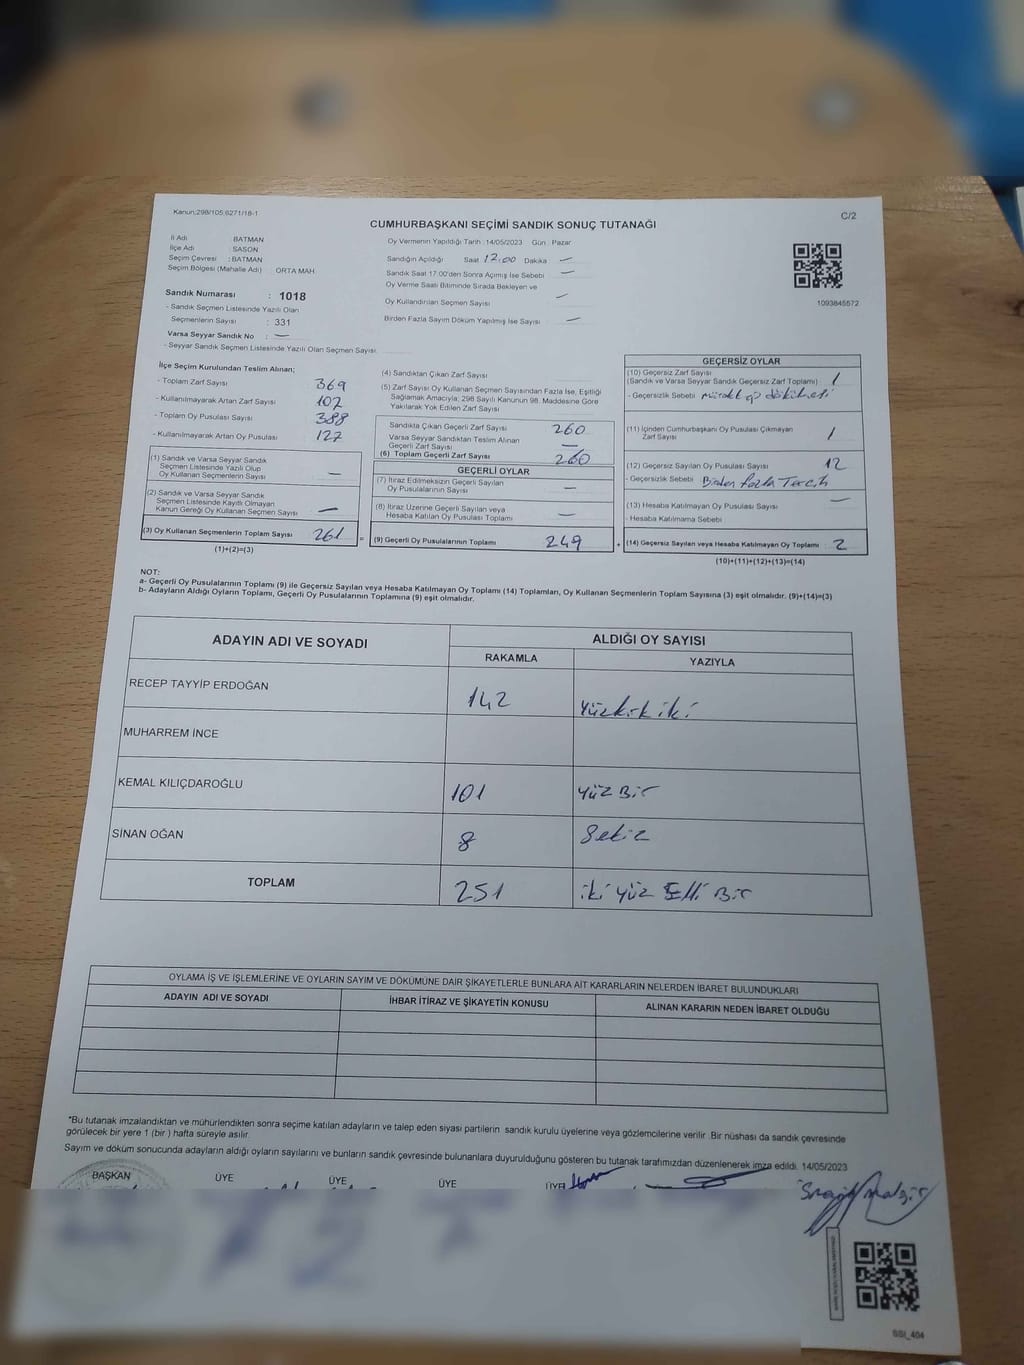 Kanun;298/105;6271/18-1
C/2
CUMHURBAŞKANI SEÇİMİ SANDIK SONUÇ TUTANAĞI
İl Adı : BATMAN
İlçe Adı : SASON
Seçim Çevresi : BATMAN
Seçim Bölgesi (Mahalle Adı) : ORTA MAH.
Sandık Numarası : 1018
- Sandık Seçmen Listesinde Yazılı Olan
Seçmenlerin Sayısı : 331
Varsa Seyyar Sandık No : —
- Seyyar Sandık Seçmen Listesinde Yazılı Olan Seçmen Sayısı:
Oy Vermenin Yapıldığı Tarih : 14/05/2023 Gün : Pazar
Sandığın Açıldığı Saat 17.00 Dakika —
Sandık Saat 17.00'den Sonra Açımış İse Sebebi —
Oy Verme Saati Bitiminde Sırada Bekleyen ve
Oy Kullandırılan Seçmen Sayısı —
Birden Fazla Sayım Döküm Yapılmış İse Sayısı —
1093845572
İlçe Seçim Kurulundan Teslim Alınan;
- Toplam Zarf Sayısı 369
- Kullanılmayarak Artan Zarf Sayısı 107
- Toplam Oy Pusulası Sayısı 388
- Kullanılmayarak Artan Oy Pusulası 127
(1) Sandık ve Varsa Seyyar Sandık
Seçmen Listesinde Yazılı Olup
Oy Kullanan Seçmenlerin Sayısı —
(2) Sandık ve Varsa Seyyar Sandık
Seçmen Listesinde Kayıtlı Olmayan
Kanun Gereği Oy Kullanan Seçmen Sayısı —
(3) Oy Kullanan Seçmenlerin Toplam Sayısı 261
(1)+(2)=(3)
=
(4) Sandıktan Çıkan Zarf Sayısı
(5) Zarf Sayısı Oy Kullanan Seçmen Sayısından Fazla İse, Eşitliği
Sağlamak Amacıyla; 298 Sayılı Kanunun 98. Maddesine Göre
Yakılarak Yok Edilen Zarf Sayısı
Sandıkta Çıkan Geçerli Zarf Sayısı 260
Varsa Seyyar Sandıktan Teslim Alınan
Geçerli Zarf Sayısı —
(6) Toplam Geçerli Zarf Sayısı 260
GEÇERLİ OYLAR
(7) İtiraz Edilmeksizin Geçerli Sayılan
Oy Pusulalarının Sayısı —
(8) İtiraz Üzerine Geçerli Sayılan veya
Hesaba Katılan Oy Pusulası Toplamı —
(9) Geçerli Oy Pusulalarının Toplamı 249
+
GEÇERSİZ OYLAR
(10) Geçersiz Zarf Sayısı
(Sandık ve Varsa Seyyar Sandık Geçersiz Zarf Toplamı) 1
- Geçersizlik Sebebi
(11) İçinden Cumhurbaşkanı Oy Pusulası Çıkmayan
Zarf Sayısı 1
(12) Geçersiz Sayılan Oy Pusulası Sayısı 12
- Geçersizlik Sebebi Birden fazla Tercih
(13) Hesaba Katılmayan Oy Pusulası Sayısı —
- Hesaba Katılmama Sebebi
(14) Geçersiz Sayılan veya Hesaba Katılmayan Oy Toplamı 2
(10)+(11)+(12)+(13)=(14)
NOT:
a- Geçerli Oy Pusulalarının Toplamı (9) ile Geçersiz Sayılan veya Hesaba Katılmayan Oy Toplamı (14) Toplamları, Oy Kullanan Seçmenlerin Toplam Sayısına (3) eşit olmalıdır. (9)+(14)=(3)
b- Adayların Aldığı Oyların Toplamı, Geçerli Oy Pusulalarının Toplamına (9) eşit olmalıdır.
ADAYIN ADI VE SOYADI ALDIĞI OY SAYISI
RAKAMLA YAZIYLA
RECEP TAYYİP ERDOĞAN 142 Yüzkırk iki
MUHARREM İNCE
KEMAL KILIÇDAROĞLU 101 Yüz Bir
SİNAN OĞAN 8 Sekiz
TOPLAM 251 iki yüz Elli Bir
OYLAMA İŞ VE İŞLEMLERİNE VE OYLARIN SAYIM VE DÖKÜMÜNE DAİR ŞİKAYETLERLE BUNLARA AİT KARARLARIN NELERDEN İBARET BULUNDUKLARI
ADAYIN ADI VE SOYADI İHBAR İTİRAZ VE ŞİKAYETİN KONUSU ALINAN KARARIN NEDEN İBARET OLDUĞU
*Bu tutanak imzalandıktan ve mühürlendikten sonra seçime katılan adayların ve talep eden siyasi partilerin sandık kurulu üyelerine veya gözlemcilerine verilir .Bir nüshası da sandık çevresinde
görülecek bir yere 1 (bir ) hafta süreyle asılır.
Sayım ve döküm sonucunda adayların aldığı oyların sayılarını ve bunların sandık çevresinde bulunanlara duyurulduğunu gösteren bu tutanak tarafımızdan düzenlenerek imza edildi. 14/05/2023
BAŞKAN ÜYE ÜYE ÜYE ÜYE
SSI_404